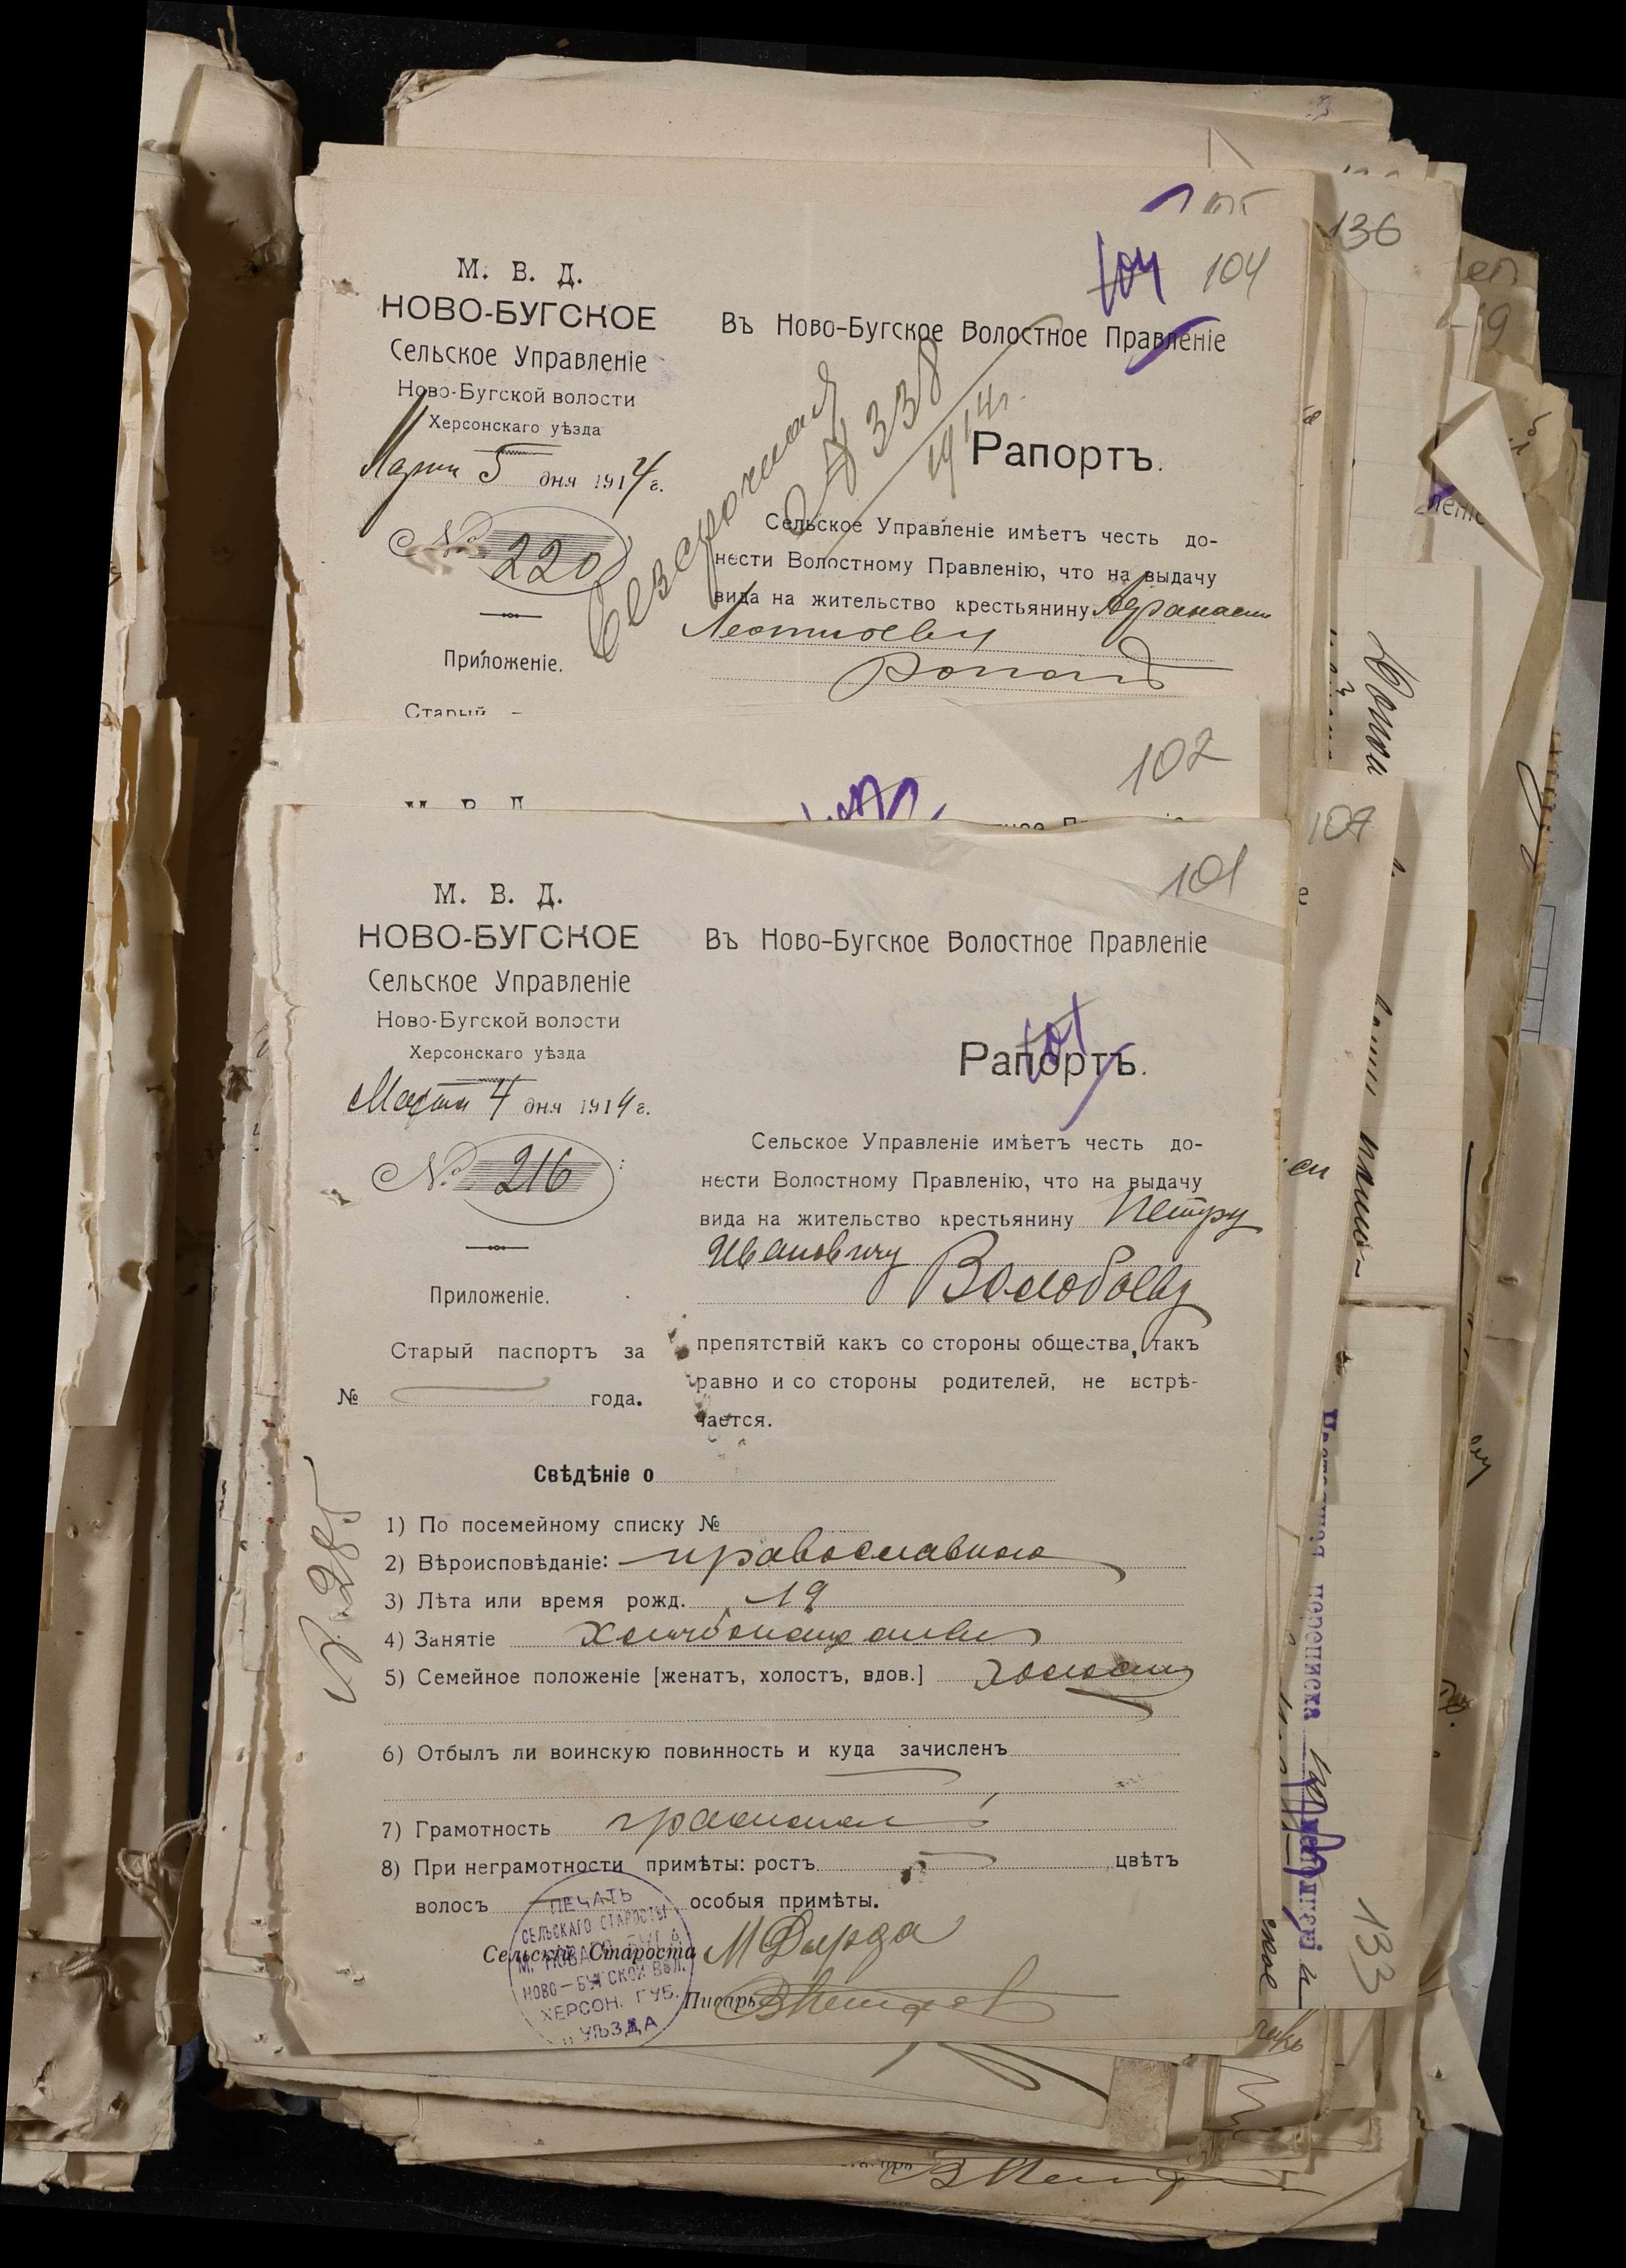 104
104
М. В. Д.
НОВО-БУГСКОЕ
Сельское Управленіе
Ново-Бугской волости
Херсонскаго уѣзда
Марта 5 дня 1914 г.
№ 220
Приложеніе.
Старый
Въ Ново-Бугское Волостное Правленіе
338
1914 г.
Рапортъ.
Сельское Управленіе имѣетъ честь до-
нести Волостному Правленію, что на выдачу
вида на жительство крестьянину
Леонтьеву
102
М. В. Д.
101
М. В. Д.
НОВО-БУГСКОЕ
Сельское Управленіе
Ново-Бугской волости
Херсонскаго уѣзда
Марта 4 дня 1914 г.
№ 216
Приложеніе.
Старый паспортъ за
№ года.
Въ Ново-Бугское Волостное Правленіе
101
Рапортъ.
Сельское Управленіе имѣетъ честь до-
нести Волостному Правленію, что на выдачу
вида на жительство крестьянину Петру
Ивановичу
Волобоеву
препятствій какъ со стороны общества, такъ
равно и со стороны родителей, не встрѣ-
чается.
Свѣдѣніе о
1) По посемейному списку №
2) Вѣроисповѣданіе: православного
3) Лѣта или время рожд. 19
4) Занятіе
5) Семейное положеніе [женатъ, холостъ, вдов.] холостъ
6) Отбылъ ли воинскую повинность и куда зачисленъ
7) Грамотность
8) При неграмотности примѣты: ростъ цвѣтъ
волосъ особыя примѣты.
Сельскій Староста
Писарь
ПЕЧАТЬ
СЕЛЬСКАГО СТАРОСТЫ
М. НОВАГО БУГА
НОВО-БУГСКОЙ ВОЛ.
ХЕРСОН. ГУБ.
И УѢЗДА
136
107
переписка
133